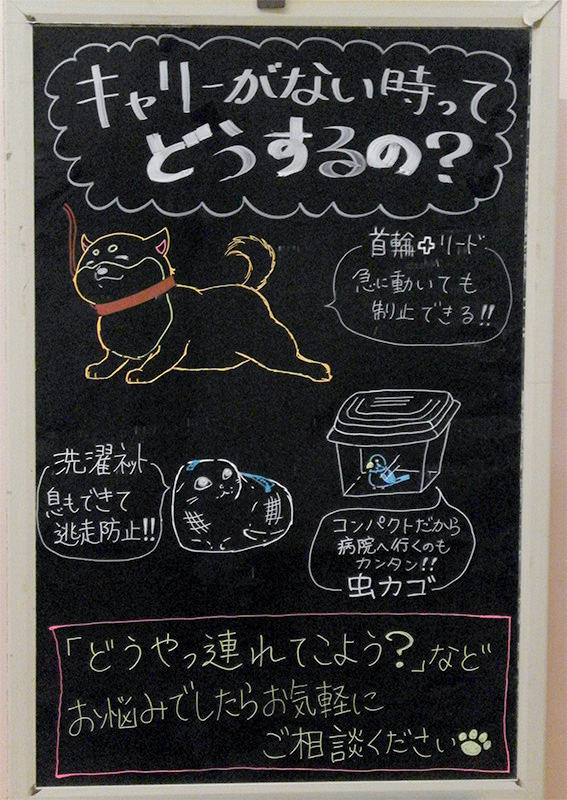 キャリーがない時って
どうするの?
首輪✚リード
急に動いても
制止できる!!
洗濯ネット
息もできて
逃走防止!!
コンパクトだから
病院へ行くのも
カンタン!!
虫カゴ
「どうやっ連れてこよう?」など
お悩みでしたらお気軽に
ご相談ください